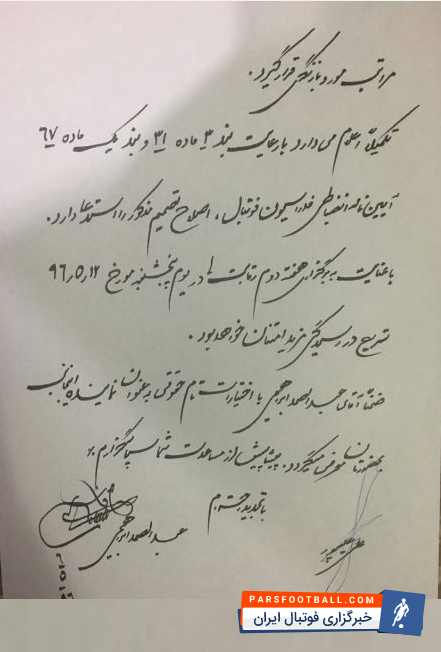 مراتب مورد بازنگری قرار گیرد.
تکمیلاً اعلام می دارد با رعایت بند ۳ ماده ۳۱ و بند یک ماده ۶۷
آیین نامه انضباطی فدراسیون فوتبال، اصلاح تصمیم مذکور را استدعا دارد.
با عنایت به برگزاری هفته دوم رقابت ها در یوم پنجشنبه مورخ ۹۶٫۵٫۱۲
تسریع در رسیدگی مزید امتنان خواهد بود.
ضمناً آقای عبدالصمد ابراهیمی با اختیارات تام حقوقی به عنوان نماینده اینجانب
بحضورتان معرفی میگردد. پیشاپیش از مساعدت شما سپاسگزارم
با تجدید احترام
عبدالصمد ابراهیمی
علی علیپور
PARSFOOTBALL.COM
خبرگزاری فوتبال ایران